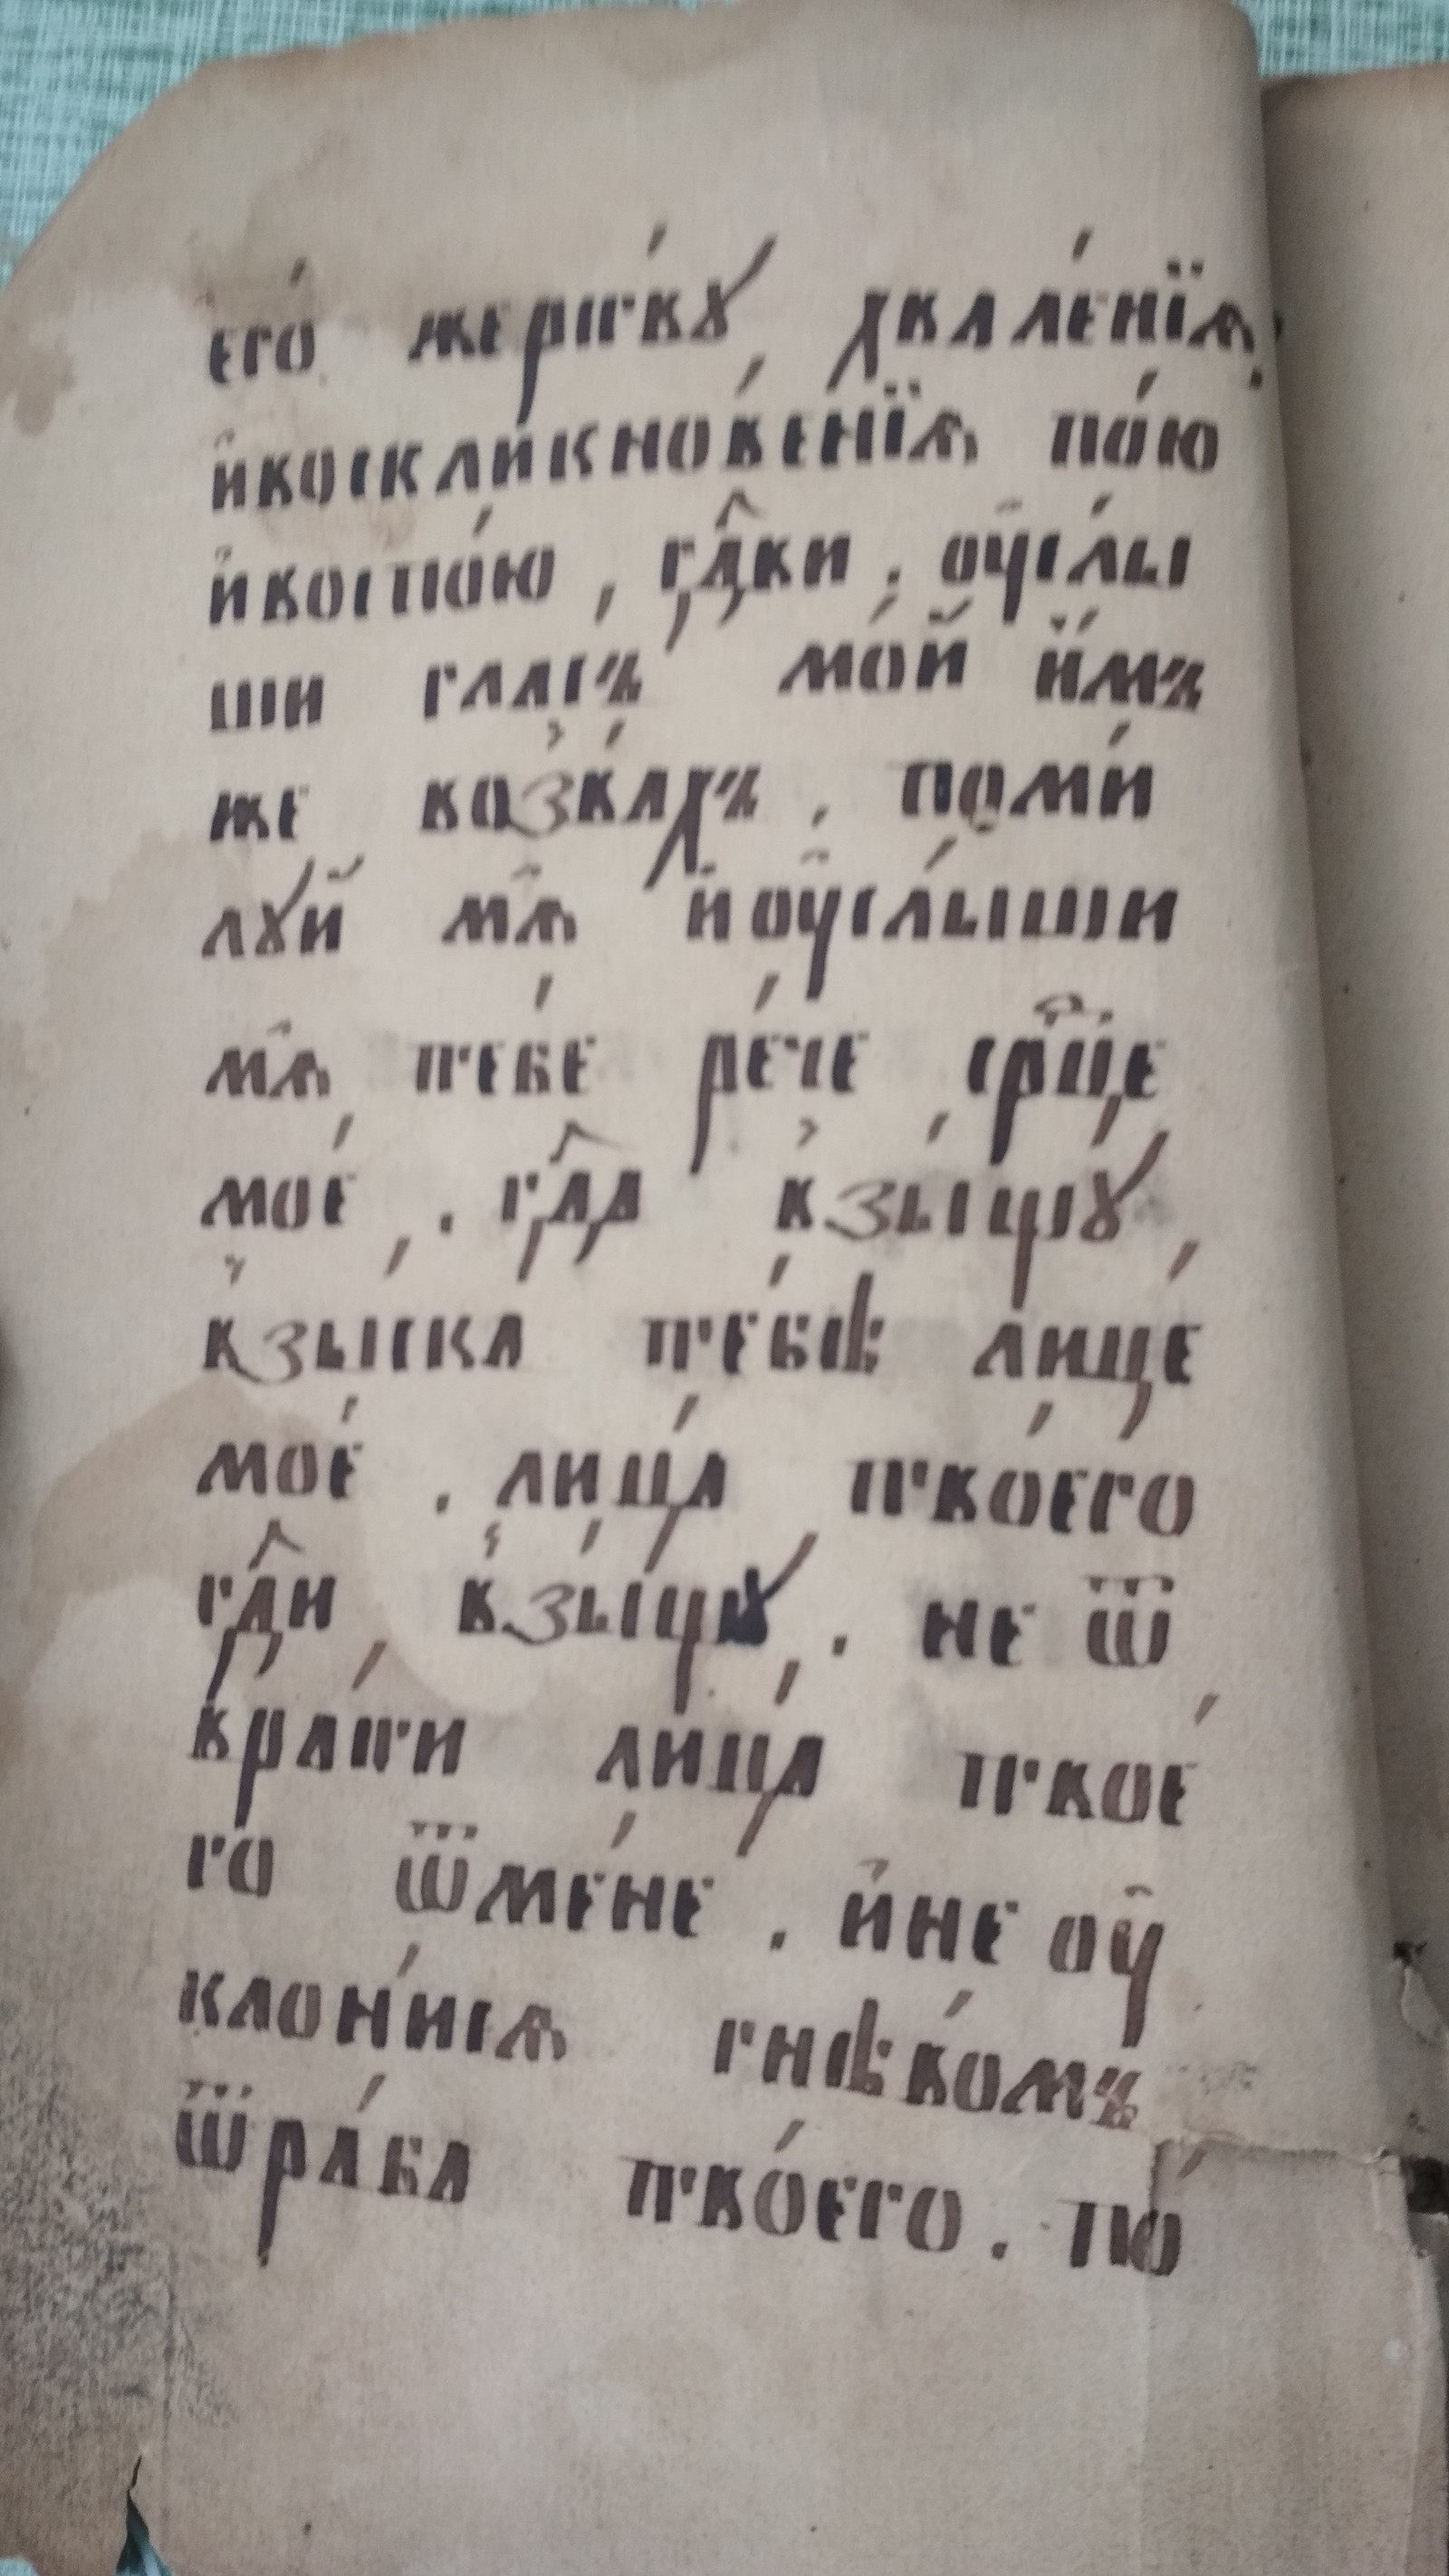 его́ же́ртвꙋ, хвале́нїѧ,
и҆воскли́кнове́нїѧ пою̀
и҆воспою̀, гдⷭ҇ви. оу҆слы́
ши гласъ мо́й и҆́мъ
же возва́хъ, поми́
лꙋй мѧ̀ и҆оу҆слы́ши
мѧ̀, тебѐ рече́ срⷣце
моѐ, гдⷭ҇а взы́щꙋ,
взыска тебѣ̀ лице
моѐ. лица̀ твоего̀
гдⷭ҇и, взы́щꙋ,. не ѿ
врати лица̀ твое
го̀ ѿменѐ. и҆не оу҆
клони́сѧ гнѣ́вомъ
ѿраба̀ твоего̀. по́